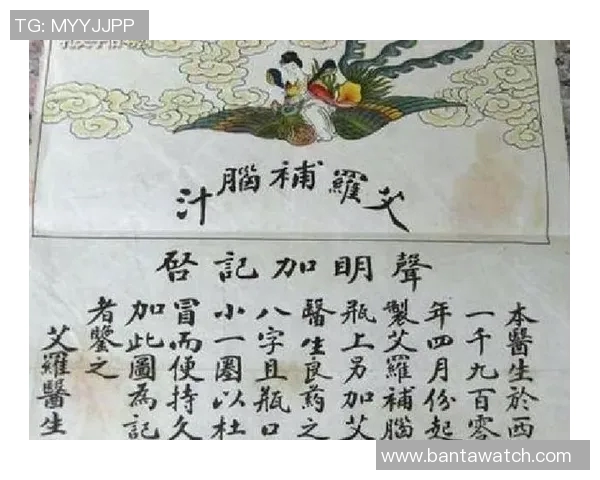 TG: MYYJJPP
艾羅補腦汁
聲明加記啓
本醫生於西
一千九百零
年四月份起
製艾羅補腦
瓶上另加艾
醫生良药之
八字且瓶口
小一圈以杜
冒而便持久
加此圖為記
者鑒之
艾羅醫生
www.bantawatch.com